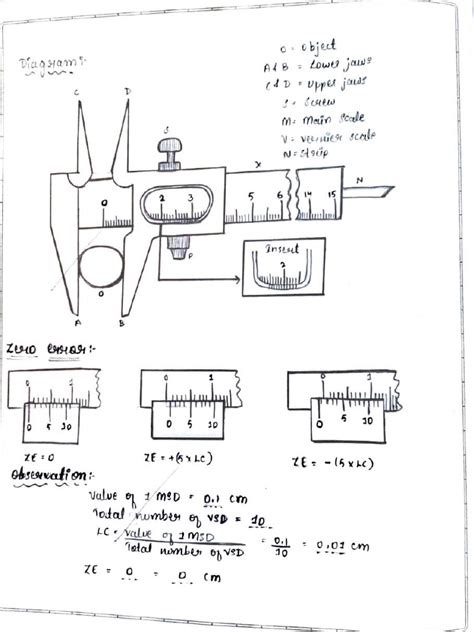 Diagram:-
O = Object
A & B = Lower jaws
C & D = Upper jaws
S = Screw
M = Main Scale
V = Vernier scale
N = Strip
C D
S
X
N
0 2 3 5 6 14 15
P
Insect
2
O
A B
Zero Error:-
0 1
0 5 10
ZE = 0
0 1
0 5 10
ZE = +(5 x LC)
0 1
0 5 10
ZE = -(5 x LC)
Observation:-
Value of 1 MSD = 0.1 cm
Total number of VSD = 10
LC = Value of 1 MSD / Total number of VSD = 0.1 / 10 = 0.01 cm
ZE = 0 = 0 cm